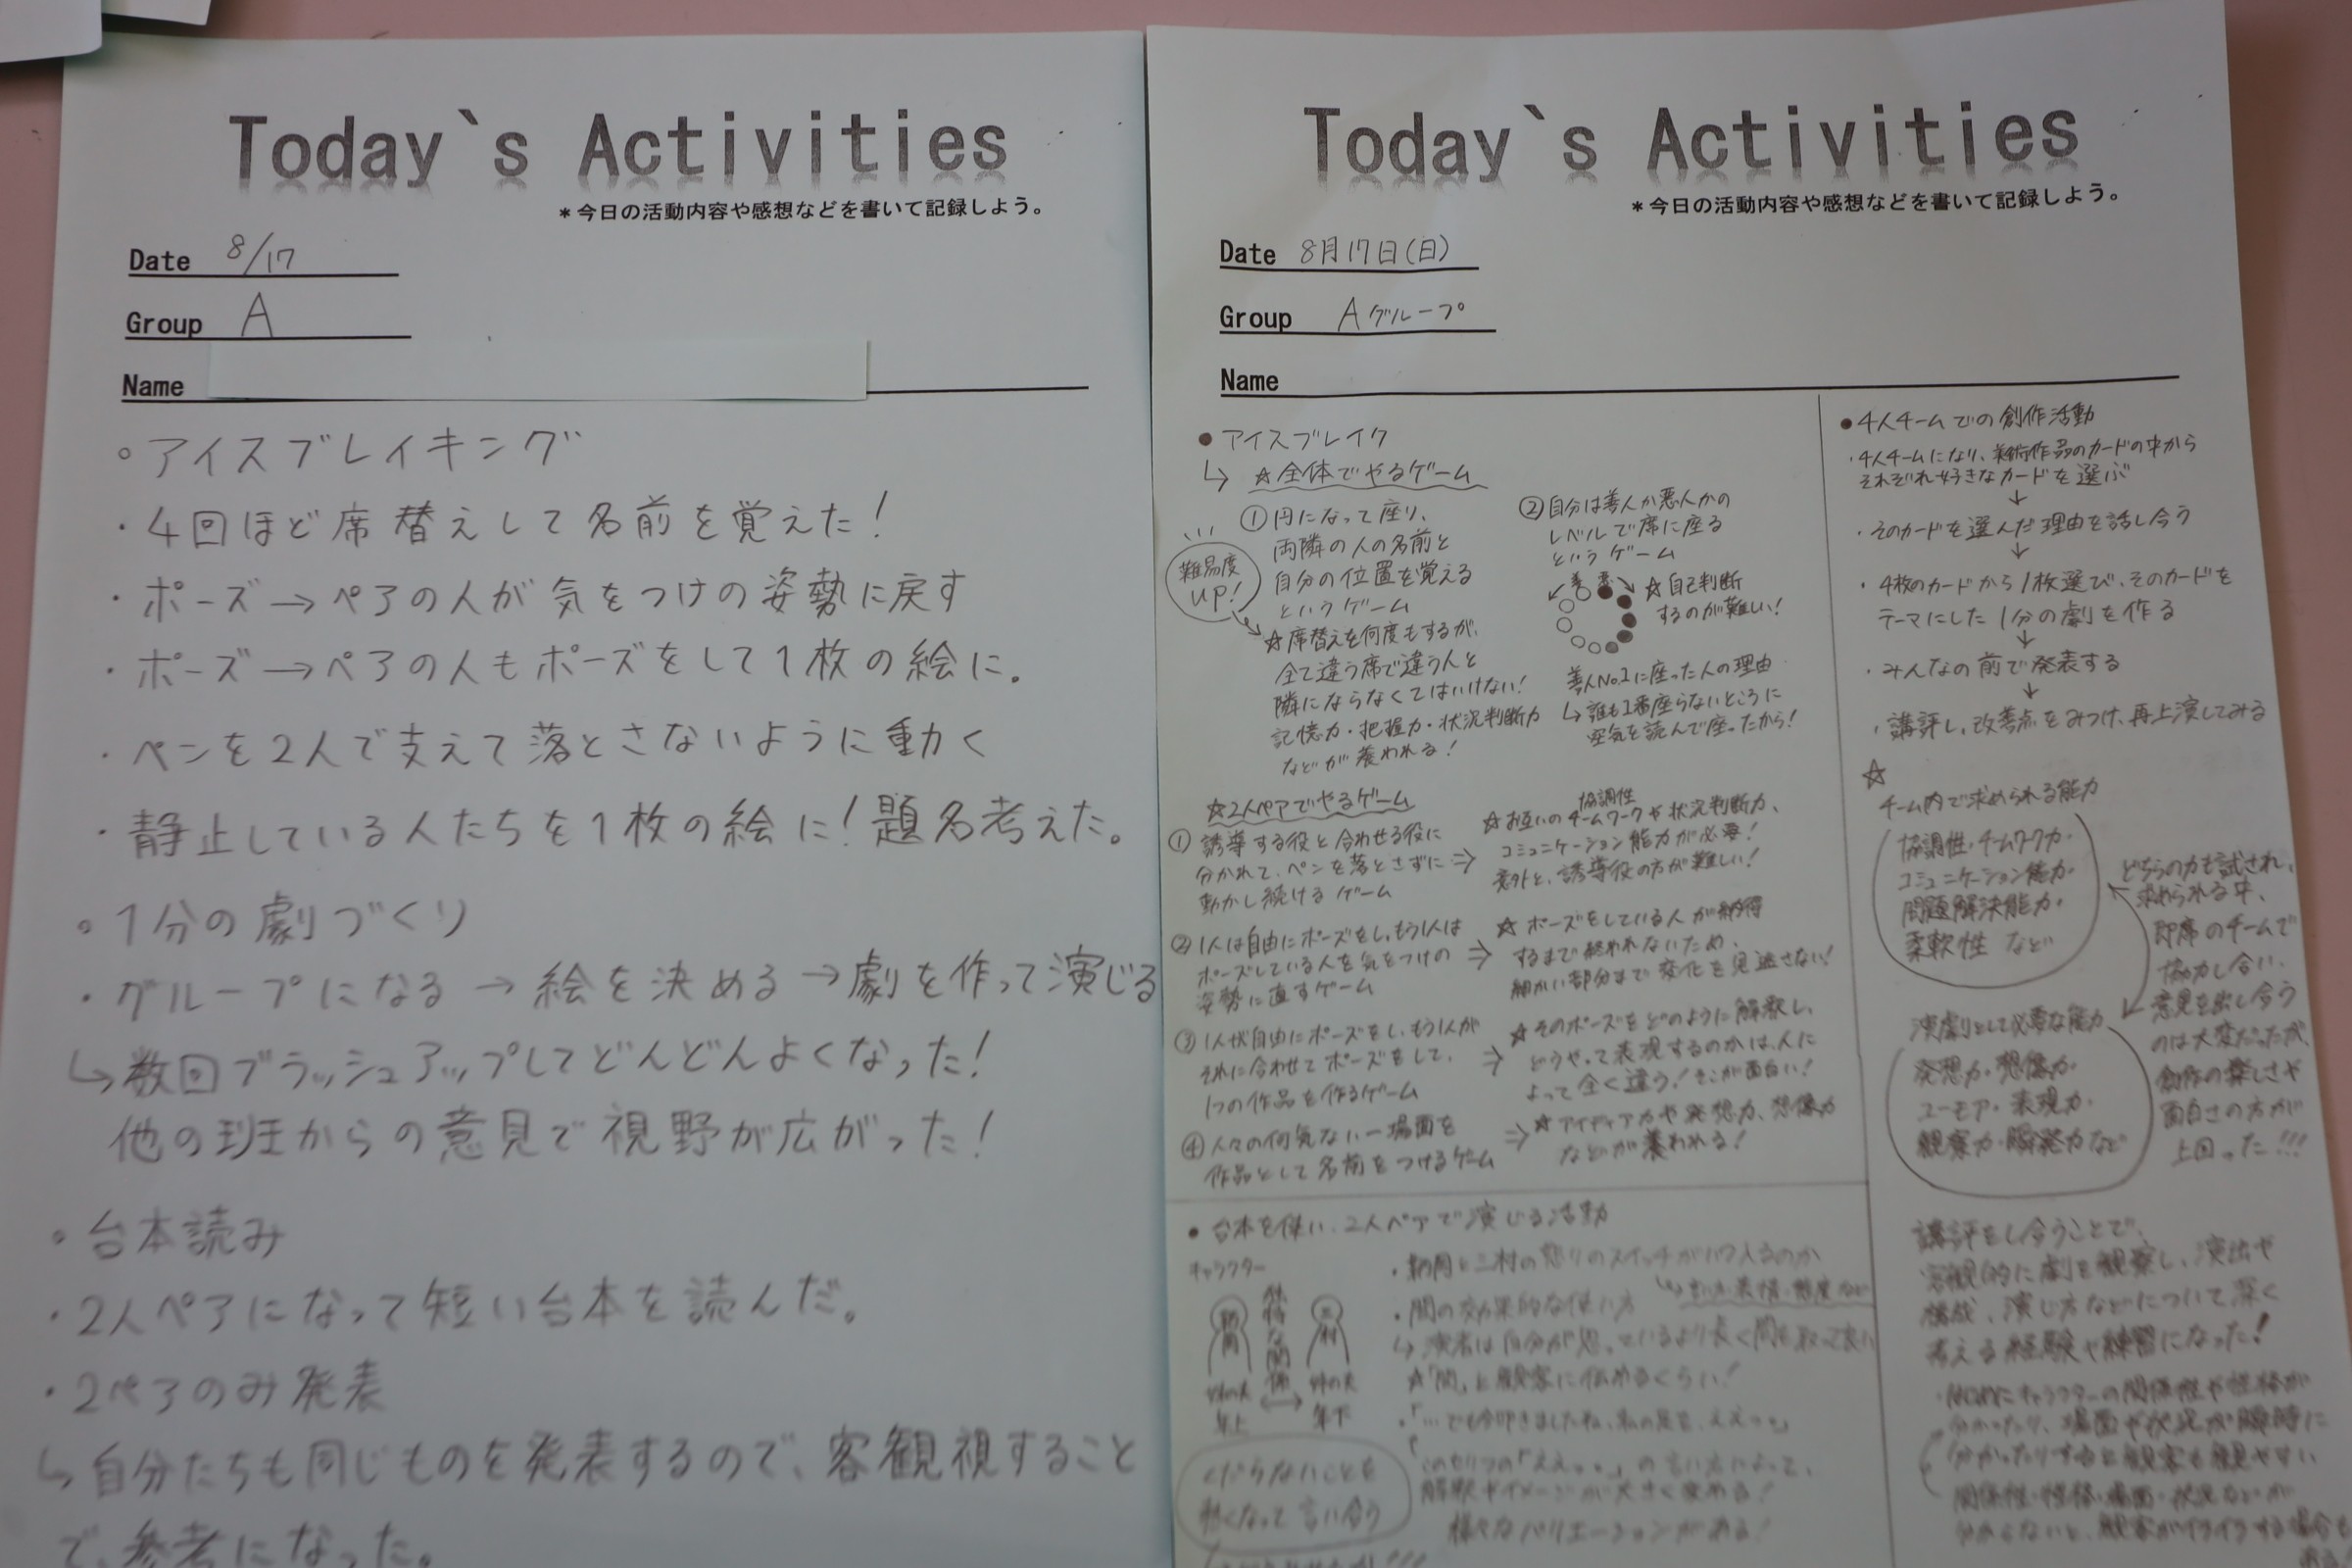 Today`s Activities
＊今日の活動内容や感想などを書いて記録しよう。
Date 8/17
Group A
Name
○アイスブレイキング
・4回ほど席替えして名前を覚えた！
・ポーズ→ペアの人が気をつけの姿勢に戻す
・ポーズ→ペアの人もポーズをして1枚の絵に。
・ペンを2人で支えて落とさないように動く
・静止している人たちを1枚の絵に！題名考えた。
○1分の劇づくり
・グループになる→絵を決める→劇を作って演じる
↳数回ブラッシュアップしてどんどんよくなった！
他の班からの意見で視野が広がった！
○台本読み
・2人ペアになって短い台本を読んだ。
・2ペアのみ発表
↳自分たちも同じものを発表するので、客観視すること
で、参考になった。
Today`s Activities
＊今日の活動内容や感想などを書いて記録しよう。
Date 8月17日(日)
Group Aグループ
Name
●アイスブレイク
↳ ☆全体でやるゲーム
①円になって座り、
両隣の人の名前と
自分の位置を覚える
というゲーム
難易度
UP!
☆席替えを何度もするが、
全て違う席で違う人と
隣にならなくてはいけない！
記憶力・把握力・状況判断力
などが養われる！
②自分は善人か悪人かの
レベルで席に座る
というゲーム
善 悪
☆自己判断
するのが難しい！
善人No.1に座った人の理由
↳誰も1番座らないところに
空気を読んで座ったから！
☆2人ペアでやるゲーム
①誘導する役と合わせる役に
分かれて、ペンを落とさずに⇒
動かし続けるゲーム
協調性
☆お互いのチームワークや状況判断力、
コミュニケーション能力が必要！
意外と、誘導役の方が難しい！
②1人は自由にポーズをし、もう1人は
ポーズしている人を気をつけの⇒
姿勢に直すゲーム
☆ポーズをしている人が納得
するまで終われないため、
細かい部分まで変化を見逃さない！
③1人が自由にポーズをし、もう1人が
それに合わせてポーズをして、⇒
1つの作品を作るゲーム
☆そのポーズをどのように解釈し、
どうやって表現するのかは、人に
よって全く違う！そこが面白い！
④人々の何気ない一場面を
作品として名前をつけるゲーム⇒
☆アイディア力や発想力、想像力
などが養われる！
●台本を使い、2人ペアで演じる活動
キャラクター
特な関係
年上
年下
くだらないことを
熱くなって言い合う
・間の効果的な使い方
↳演者は自分が思っているより長く間を取って良い
☆「間」と観客に伝わるくらい！
解釈やイメージが大きく変わる！
様々なバリエーションがある！
●4人チームでの創作活動
・4人チームになり、美術作品のカードの中から
それぞれ好きなカードを選ぶ
↓
・そのカードを選んだ理由を話し合う
↓
・4枚のカードから1枚選び、そのカードを
テーマにした1分の劇を作る
↓
・みんなの前で発表する
↓
・講評し、改善点をみつけ、再上演してみる
☆
チーム内で求められる能力
協調性・チームワーク力・
コミュニケーション能力・
問題解決能力・
柔軟性 など
演劇として必要な能力
発想力・想像力・
ユーモア・表現力・
観察力・瞬発力など
どちらの力も試され、
求められる中、
即席のチームで
協力し合い、
意見を出し合う
のは大変だったが、
創作の楽しさや
面白さの方が
上回った!!!
講評をし合うことで、
客観的に劇を観察し、演出や
構成、演じ方などについて深く
考える経験や練習になった！